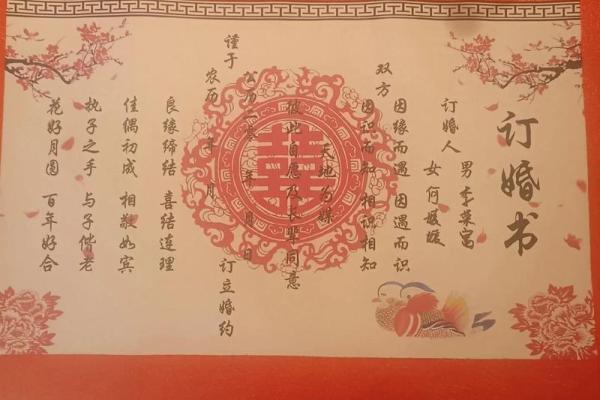 订婚书
订婚人 男 李荣富
女 何媛媛
双方 因缘而遇 因遇而识
因识而知 相识相知
天地为媒
彼此自愿 双长辈同意
谨于 公历 年 月 日
农历 年 月 订立婚约
良缘缔结 喜结连理
佳偶初成 相敬如宾
执子之手 与子偕老
花好月圆 百年好合
囍